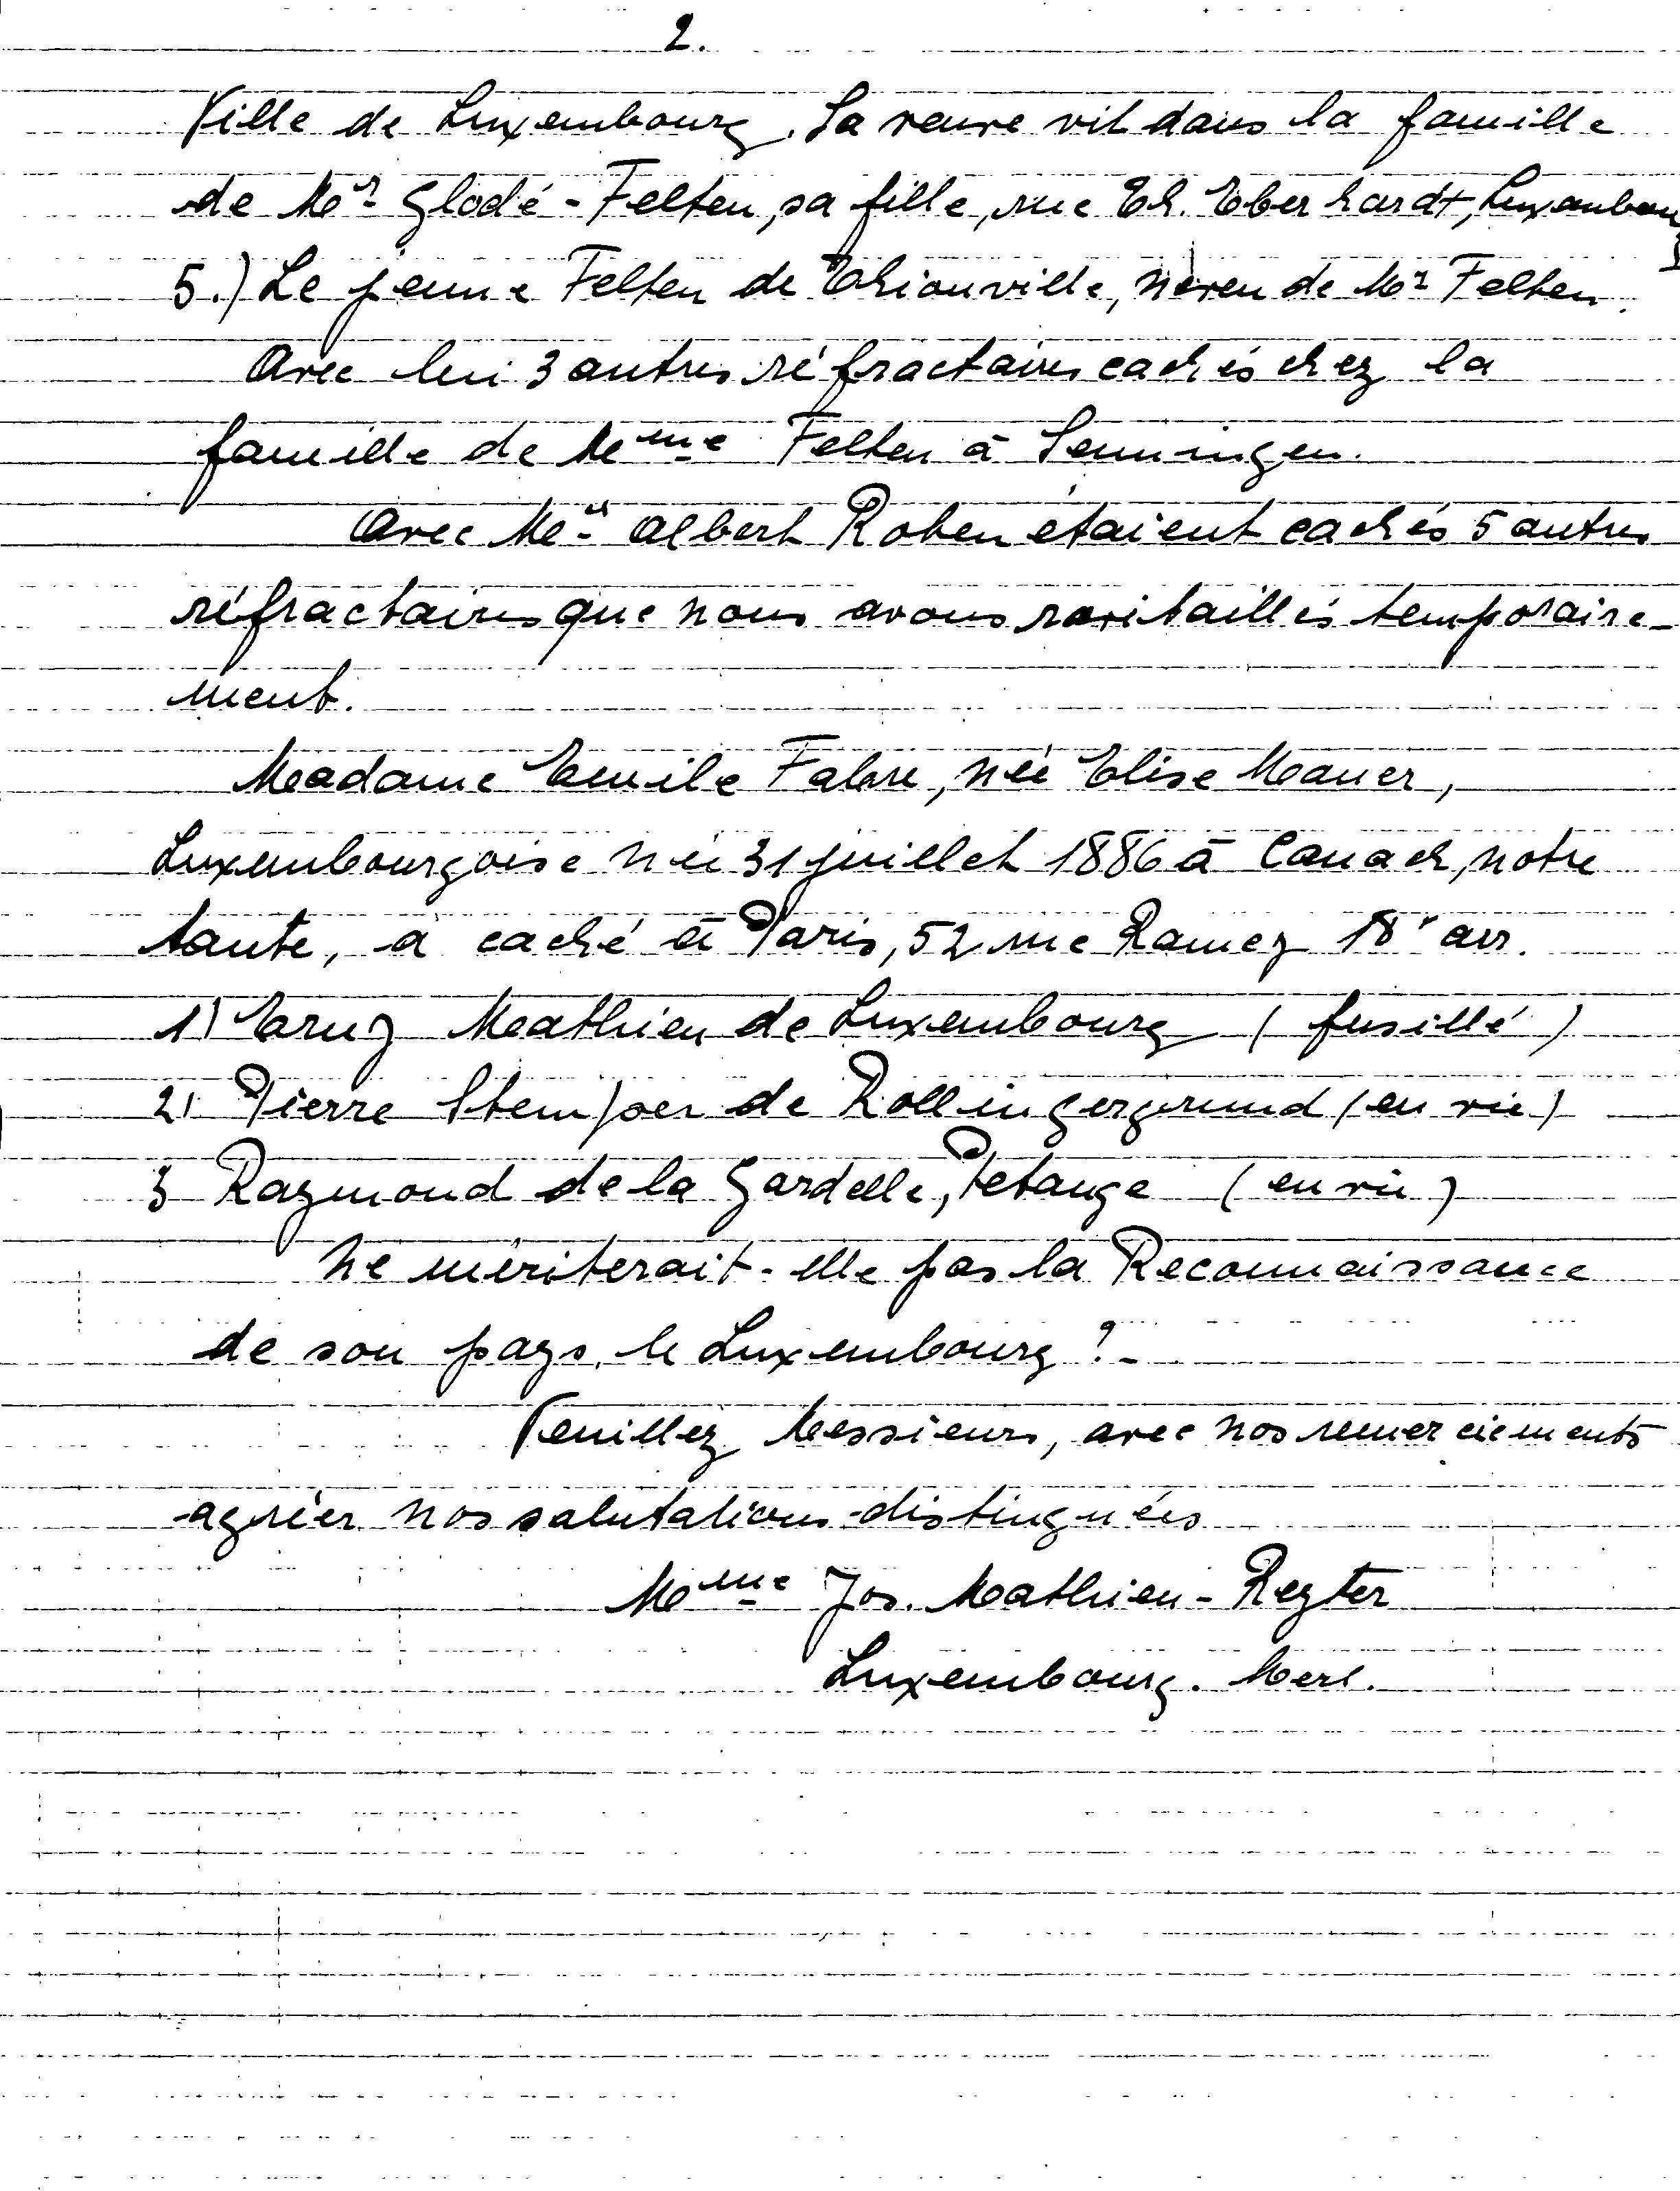 2.
Ville de Luxembourg. Sa veuve vit dans la famille
de Mr Glodé-Felten, sa fille, rue Th. Eberhardt, Luxembourg
5.) Le jeune Felten de Thionville, neveu de Mr Felten.
Avec lui 3 autres réfractaires cachés chez la
famille de Mme Felten à Senningen.
Avec Mr Albert Roben étaient cachés 5 autres
réfractaires que nous avons ravitaillés temporaire-
ment.
Madame Emile Fabre, née Elise Mauer,
Luxembourgoise née 31 juillet 1886 à Canach, notre
tante, a caché à Paris, 52 rue Ramey 18e arr.
1) Mathieu de Luxembourg (fusillé)
2) Pierre Stemper de Rollingergrund (en vie)
3 Raymond de la Gardelle, Petange (en vie)
Ne mériterait-elle pas la Reconnaissance
de son pays, le Luxembourg?-
Veuillez Messieurs, avec nos remerciements
agréer nos salutations distinguées
Mme Jos. Mathieu-Reyter
Luxembourg. Merl.